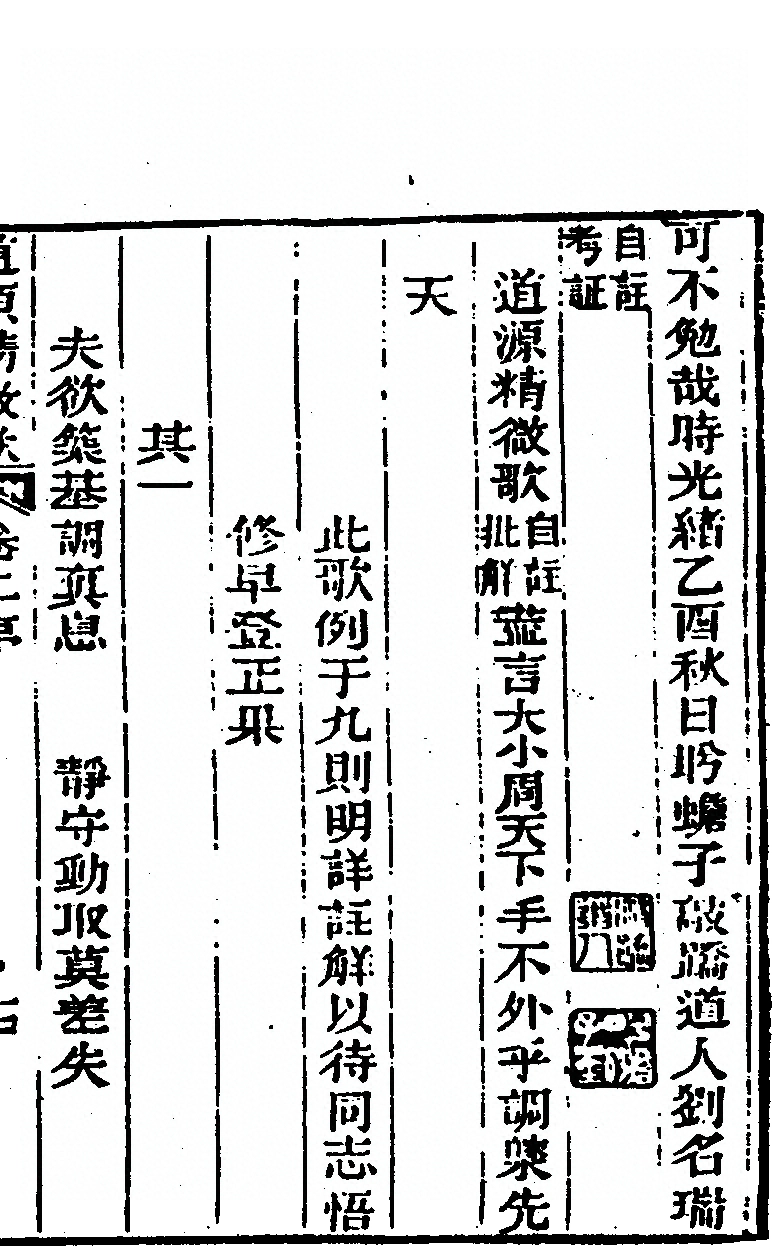 可不勉哉時光緒乙酉秋日盻蟾子敲蹻道人劉名瑞
自註
考証
道源精微歌
自註
批解
蓋言大小周天下手不外乎調藥先
天
此歌例于九則明詳註解以待同志悟
修早登正果
其一
夫欲築基調真息　靜守動取莫差失
道源精微歌 卷上 亭